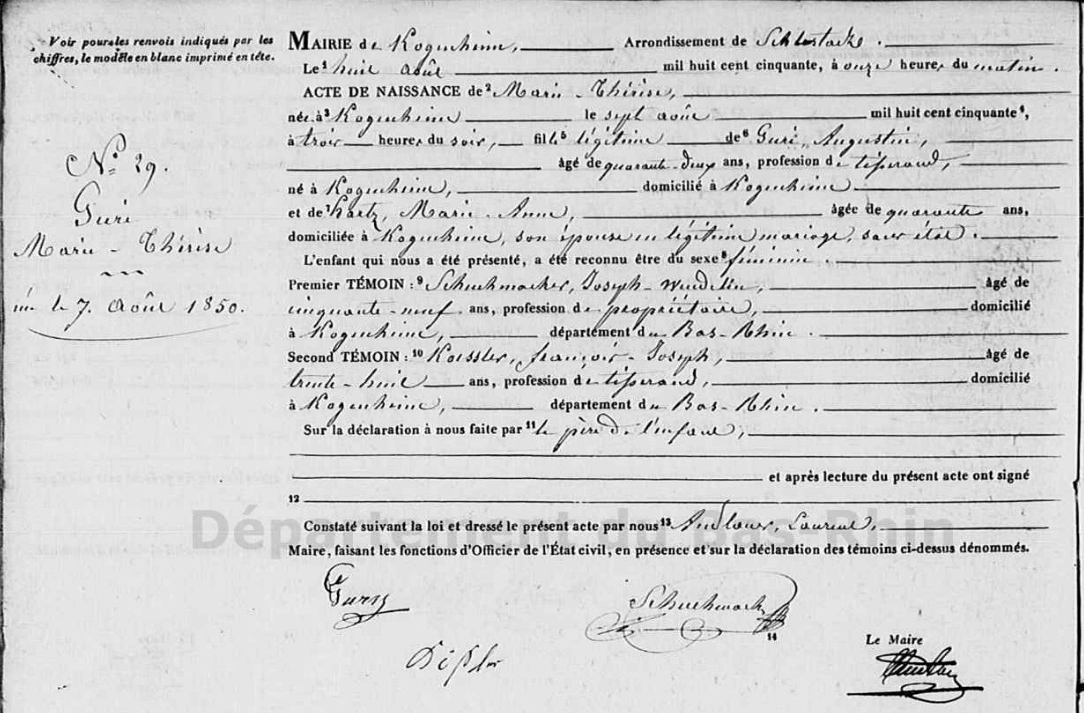 Voir pour les renvois indiqués par les
chiffres, le modèle en blanc imprimé en tête.
N.° 29.
Guri
Marie-Thérèse
née le 7. Août 1850.
MAIRIE de Kogenheim, Arrondissement de Schlestadt.
Le¹ huit août mil huit cent cinquante, à onze heures du matin.
ACTE DE NAISSANCE de² Marie-Thérèse,
née à³ Kogenheim le sept août mil huit cent cinquante⁴,
à trois heures du soir, fille⁵ légitime de⁶ Guri, Augustin,
âgé de quarante-deux ans, profession de tisserand,
né à Kogenheim, domicilié à Kogenheim
et de⁷ Hartz, Marie-Anne, âgée de quarante ans,
domiciliée à Kogenheim, son épouse en légitime mariage, sans état.
L'enfant qui nous a été présenté, a été reconnu être du sexe⁸ féminin.
Premier TÉMOIN :⁹ Schuhmacher, Joseph-Wendelin, âgé de
cinquante-neuf ans, profession de propriétaire, domicilié
à Kogenheim, département du Bas-Rhin.
Second TÉMOIN :¹⁰ Koessler, François-Joseph, âgé de
trente-huit ans, profession de tisserand, domicilié
à Kogenheim, département du Bas-Rhin.
Sur la déclaration à nous faite par¹¹ le père de l'enfant,
et après lecture du présent acte ont signé
12
Constaté suivant la loi et dressé le présent acte par nous¹³ Andlauer, Laurent,
Maire, faisant les fonctions d'Officier de l'État civil, en présence et sur la déclaration des témoins ci-dessus dénommés.
Département du Bas-Rhin
Gury
14
Le Maire